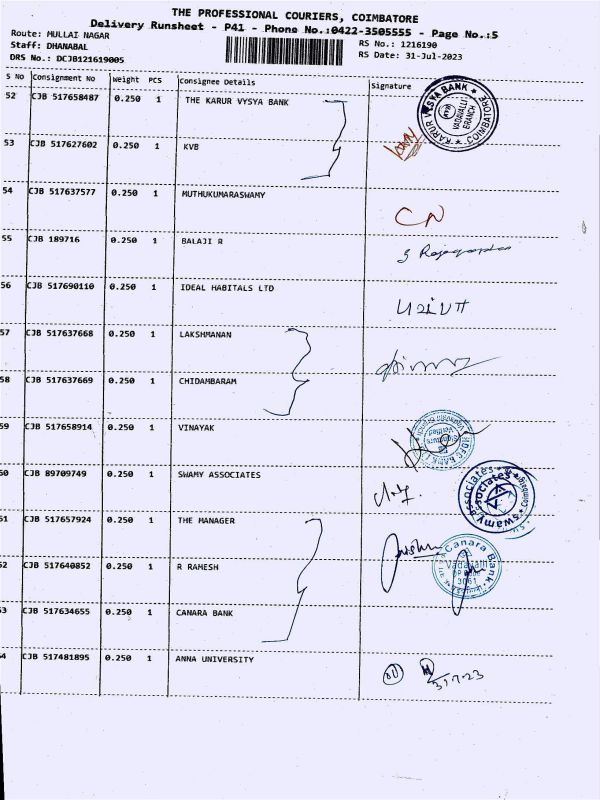 THE PROFESSIONAL COURIERS, COIMBATORE
Delivery Runsheet - P41 - Phone No.:0422-3505555 - Page No.:5
Route: MULLAI NAGAR
Staff: DHANABAL
DRS No.: DCJB121619005
RS No.: 1216190
RS Date: 31-Jul-2023
S No Consignment No Weight PCS Consignee Details Signature
52 CJB 517658487 0.250 1 THE KARUR VYSYA BANK
KARUR VYSYA BANK VADAVALLI BRANCH COIMBATORE
53 CJB 517627602 0.250 1 KVB
54 CJB 517637577 0.250 1 MUTHUKUMARASWAMY
CN
55 CJB 189716 0.250 1 BALAJI R
56 CJB 517690110 0.250 1 IDEAL HABITALS LTD
57 CJB 517637668 0.250 1 LAKSHMANAN
58 CJB 517637669 0.250 1 CHIDAMBARAM
59 CJB 517658914 0.250 1 VINAYAK
HDFC BANK
60 CJB 89709749 0.250 1 SWAMY ASSOCIATES
swamy associates
51 CJB 517657924 0.250 1 THE MANAGER
52 CJB 517640852 0.250 1 R RAMESH
Canara Bank
3061
53 CJB 517634655 0.250 1 CANARA BANK
54 CJB 517481895 0.250 1 ANNA UNIVERSITY
31-7-23